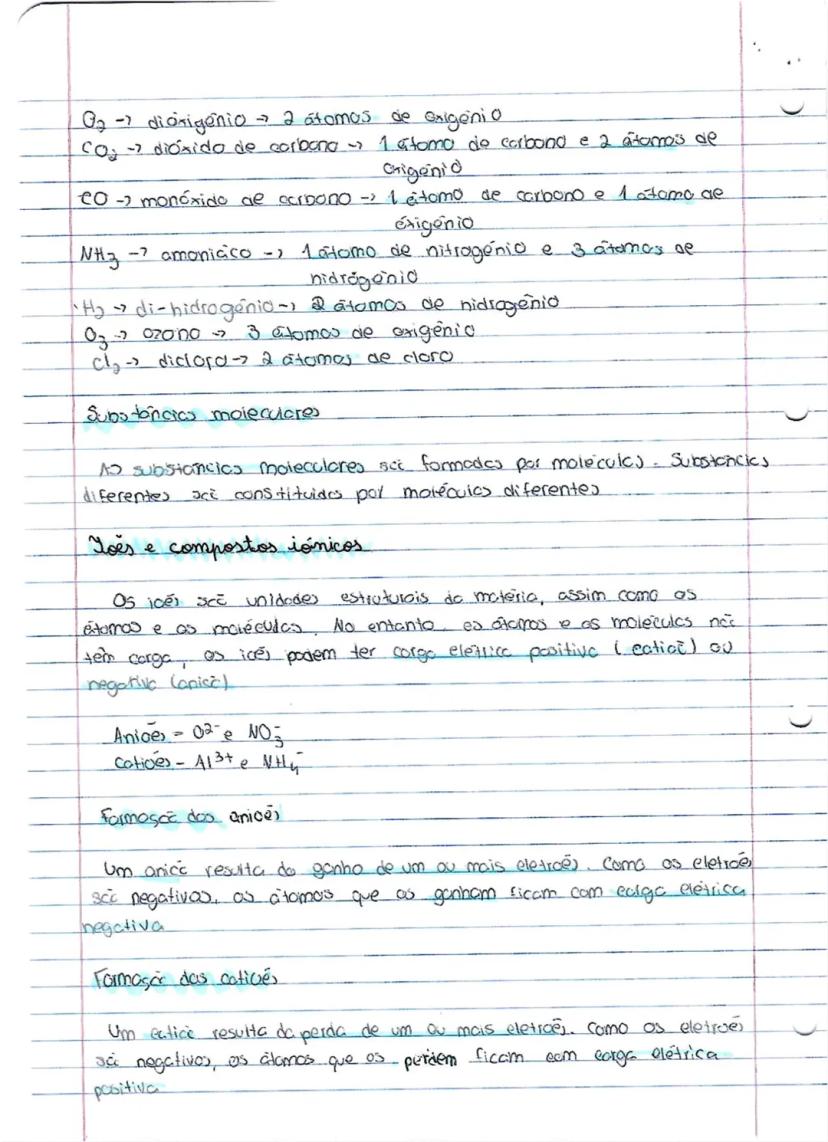 O₂ → dioxigénio → 2 átomos de oxigénio
CO₂ → dióxido de carbono → 1 átomo de carbono e 2 átomos de
oxigénio
CO → monóxido de carbono → 1 átomo de carbono e 1 átomo de
oxigénio
NH₃ → amoniáco → 1 átomo de nitrogénio e 3 átomos de
hidrogénio
H₂ → di-hidrogénio → 2 átomos de hidrogénio
O₃ → ozono → 3 átomos de oxigénio
Cl₂ → dicloro → 2 átomos de cloro
Substâncias moleculares
As substâncias moleculares são formadas por moléculas. Substâncias
diferentes são constituidas por moléculas diferentes
Iões e compostos iónicos
Os iões são unidades estruturais da matéria, assim como os
átomos e as moléculas. No entanto os átomos e as moléculas não
têm carga, os iões podem ter carga elétrica positiva (catião) ou
negativa (anião)
Aniões - O²⁻ e NO₃⁻
Catiões - Al³⁺ e NH₄⁻
Formação dos aniões
Um anião resulta do ganho de um ou mais eletrões. Como os eletrões
são negativos, os átomos que os ganham ficam com carga elétrica
negativa
Formação dos catiões
Um catião resulta da perda de um ou mais eletrões. Como os eletrões
são negativos, os átomos que os perdem ficam com carga elétrica
positiva